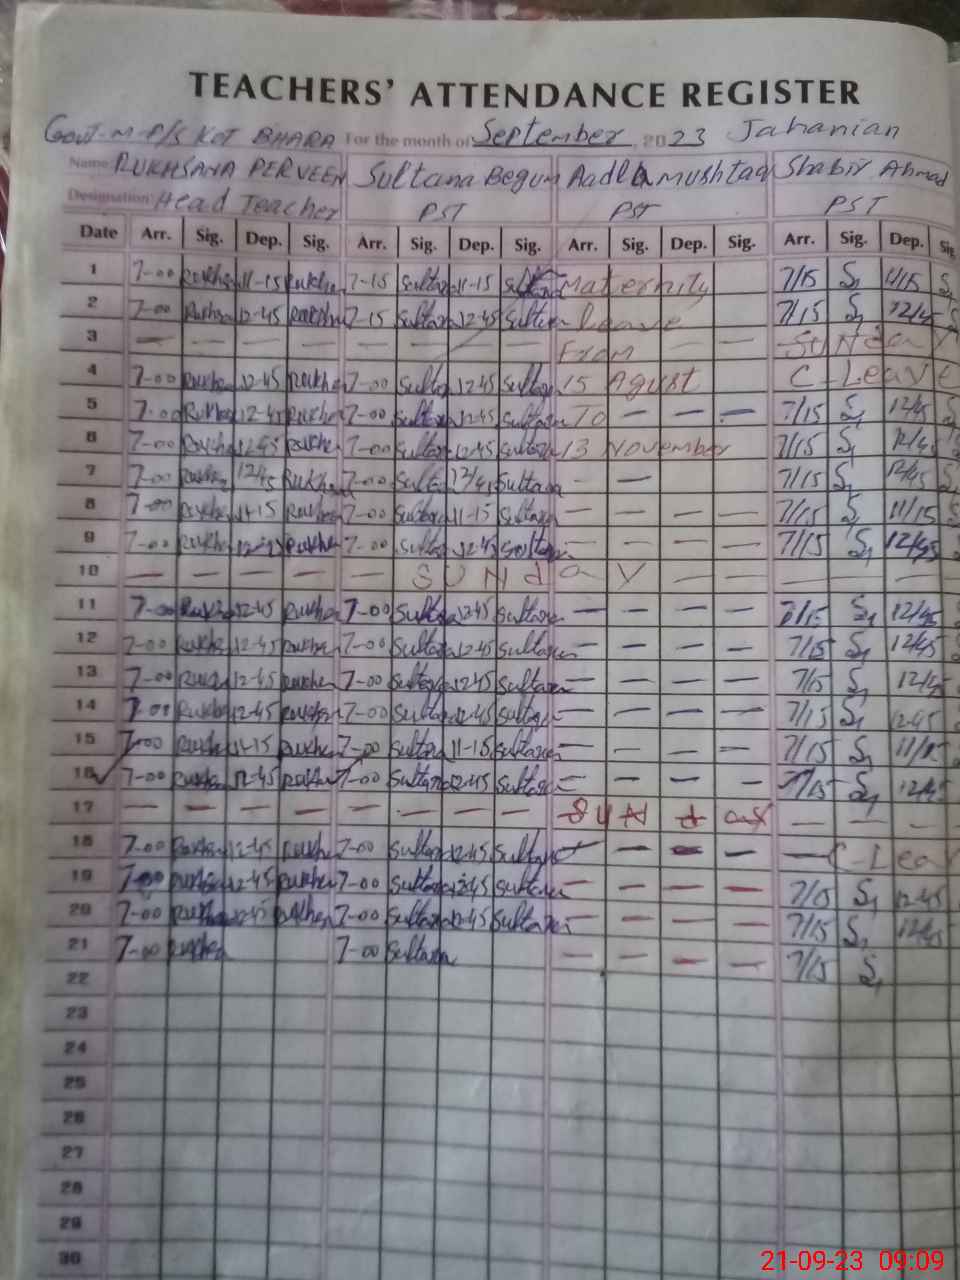 TEACHERS' ATTENDANCE REGISTER
Govt. M P/S KOT BHARA For the month of September 2023 Jahanian
Name RUKHSANA PERVEEN Sultana Begum Aadla Mushtaq Shabir Ahmad
Designation Head Teacher PST PST PST
Date Arr. Sig. Dep. Sig. Arr. Sig. Dep. Sig. Arr. Sig. Dep. Sig. Arr. Sig. Dep. Sig
1 7-00 Rukhs 11-15 Rukhs 7-15 Sultana 11-15 Sultana Maternity 7/15 S 11/15 S
2 7-00 Rukhs 12-45 Rukhs 7-15 Sultana 12-45 Sultana leave 7/15 S 12/45 S
3 — — — — — — — — From — — — Sunday
4 7-00 Rukhs 12-45 Rukhs 7-00 Sultana 12-45 Sultana 15 Agust C-Leave
5 7-00 Rukhs 12-45 Rukhs 7-00 Sultana 12-45 Sultana To — — — 7/15 S 12/45
6 7-00 Rukhs 12-45 Rukhs 7-00 Sultana 12-45 Sultana 13 November 7/15 S 12/45
7 7-00 Rukhs 12/45 Rukhs 7-00 Sultana 12/45 Sultana — — 7/15 S 12/45
8 7-00 Rukhs 11-15 Rukhs 7-00 Sultana 11-15 Sultana — — — — 7/15 S 11/15
9 7-00 Rukhs Rukhs 7-00 Sultana 12-45 Sultana — — — — 7/15 S 12/45
10 — — — — — SUNday — — — — —
11 7-00 Rukhs 12-45 Rukhs 7-00 Sultana 12-45 Sultana — — — — 7/15 S 12/45
12 7-00 Rukhs 12-45 Rukhs 7-00 Sultana 12-45 Sultana — — — — 7/15 S 12/45
13 7-00 Rukhs 12-45 Rukhs 7-00 Sultana 12-45 Sultana — — — — 7/15 S 12/45
14 7-00 Rukhs 12-45 Rukhs 7-00 Sultana 12-45 Sultana — — — — 7/15 S 12-45
15 7-00 Rukhs 11-15 Rukhs 7-00 Sultana 11-15 Sultana — — — — 7/15 S 11/15
16 7-00 Rukhs 12-45 Rukhs 7-00 Sultana 12-45 Sultana — — — — 7/15 S 12/45
17 — — — — — — — — Sunday — — —
18 7-00 Rukhs 12-45 Rukhs 7-00 Sultana 12-45 Sultana — — — — — C-Leav
19 7-00 Rukhs 12-45 Rukhs 7-00 Sultana 12-45 Sultana — — — — 7/15 S 12-45
20 7-00 Rukhs 12-45 Rukhs 7-00 Sultana 12-45 Sultana — — — 7/15 S 12/45
21 7-00 Rukhs 7-00 Sultana — — — — 7/15 S
22
23
24
25
26
27
28
29
30
21-09-23 09:09